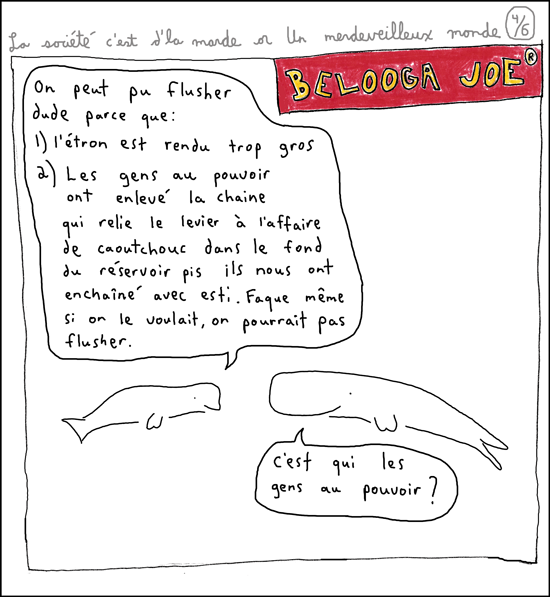 La société c'est d'la marde or Un merdeveilleux monde 4/6
BELOOGA JOE®
On peut pu flusher
dude parce que:
1) l'étron est rendu trop gros
2) Les gens au pouvoir
ont enlevé la chaine
qui relie le levier à l'affaire
de caoutchouc dans le fond
du réservoir pis ils nous ont
enchaîné avec esti. Faque même
si on le voulait, on pourrait pas
flusher.
C'est qui les
gens au pouvoir?